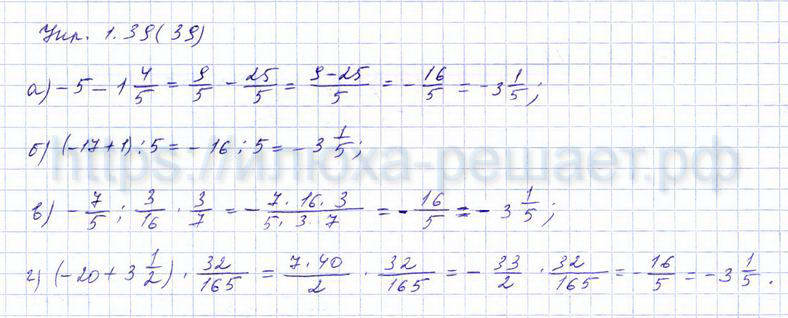 Упр. 1.39(39)
а) -5 - 1 4/5 = 9/5 - 25/5 = 9-25/5 = -16/5 = -3 1/5;
б) (-17+1):5 = -16:5 = -3 1/5;
https://илюха-решает.рф
в) -7/5 : 3/16 · 3/7 = -7·16·3/5·3·7 = -16/5 = -3 1/5;
г) (-20+3 1/2) · 32/165 = 7·40/2 · 32/165 = -33/2 · 32/165 = -16/5 = -3 1/5.